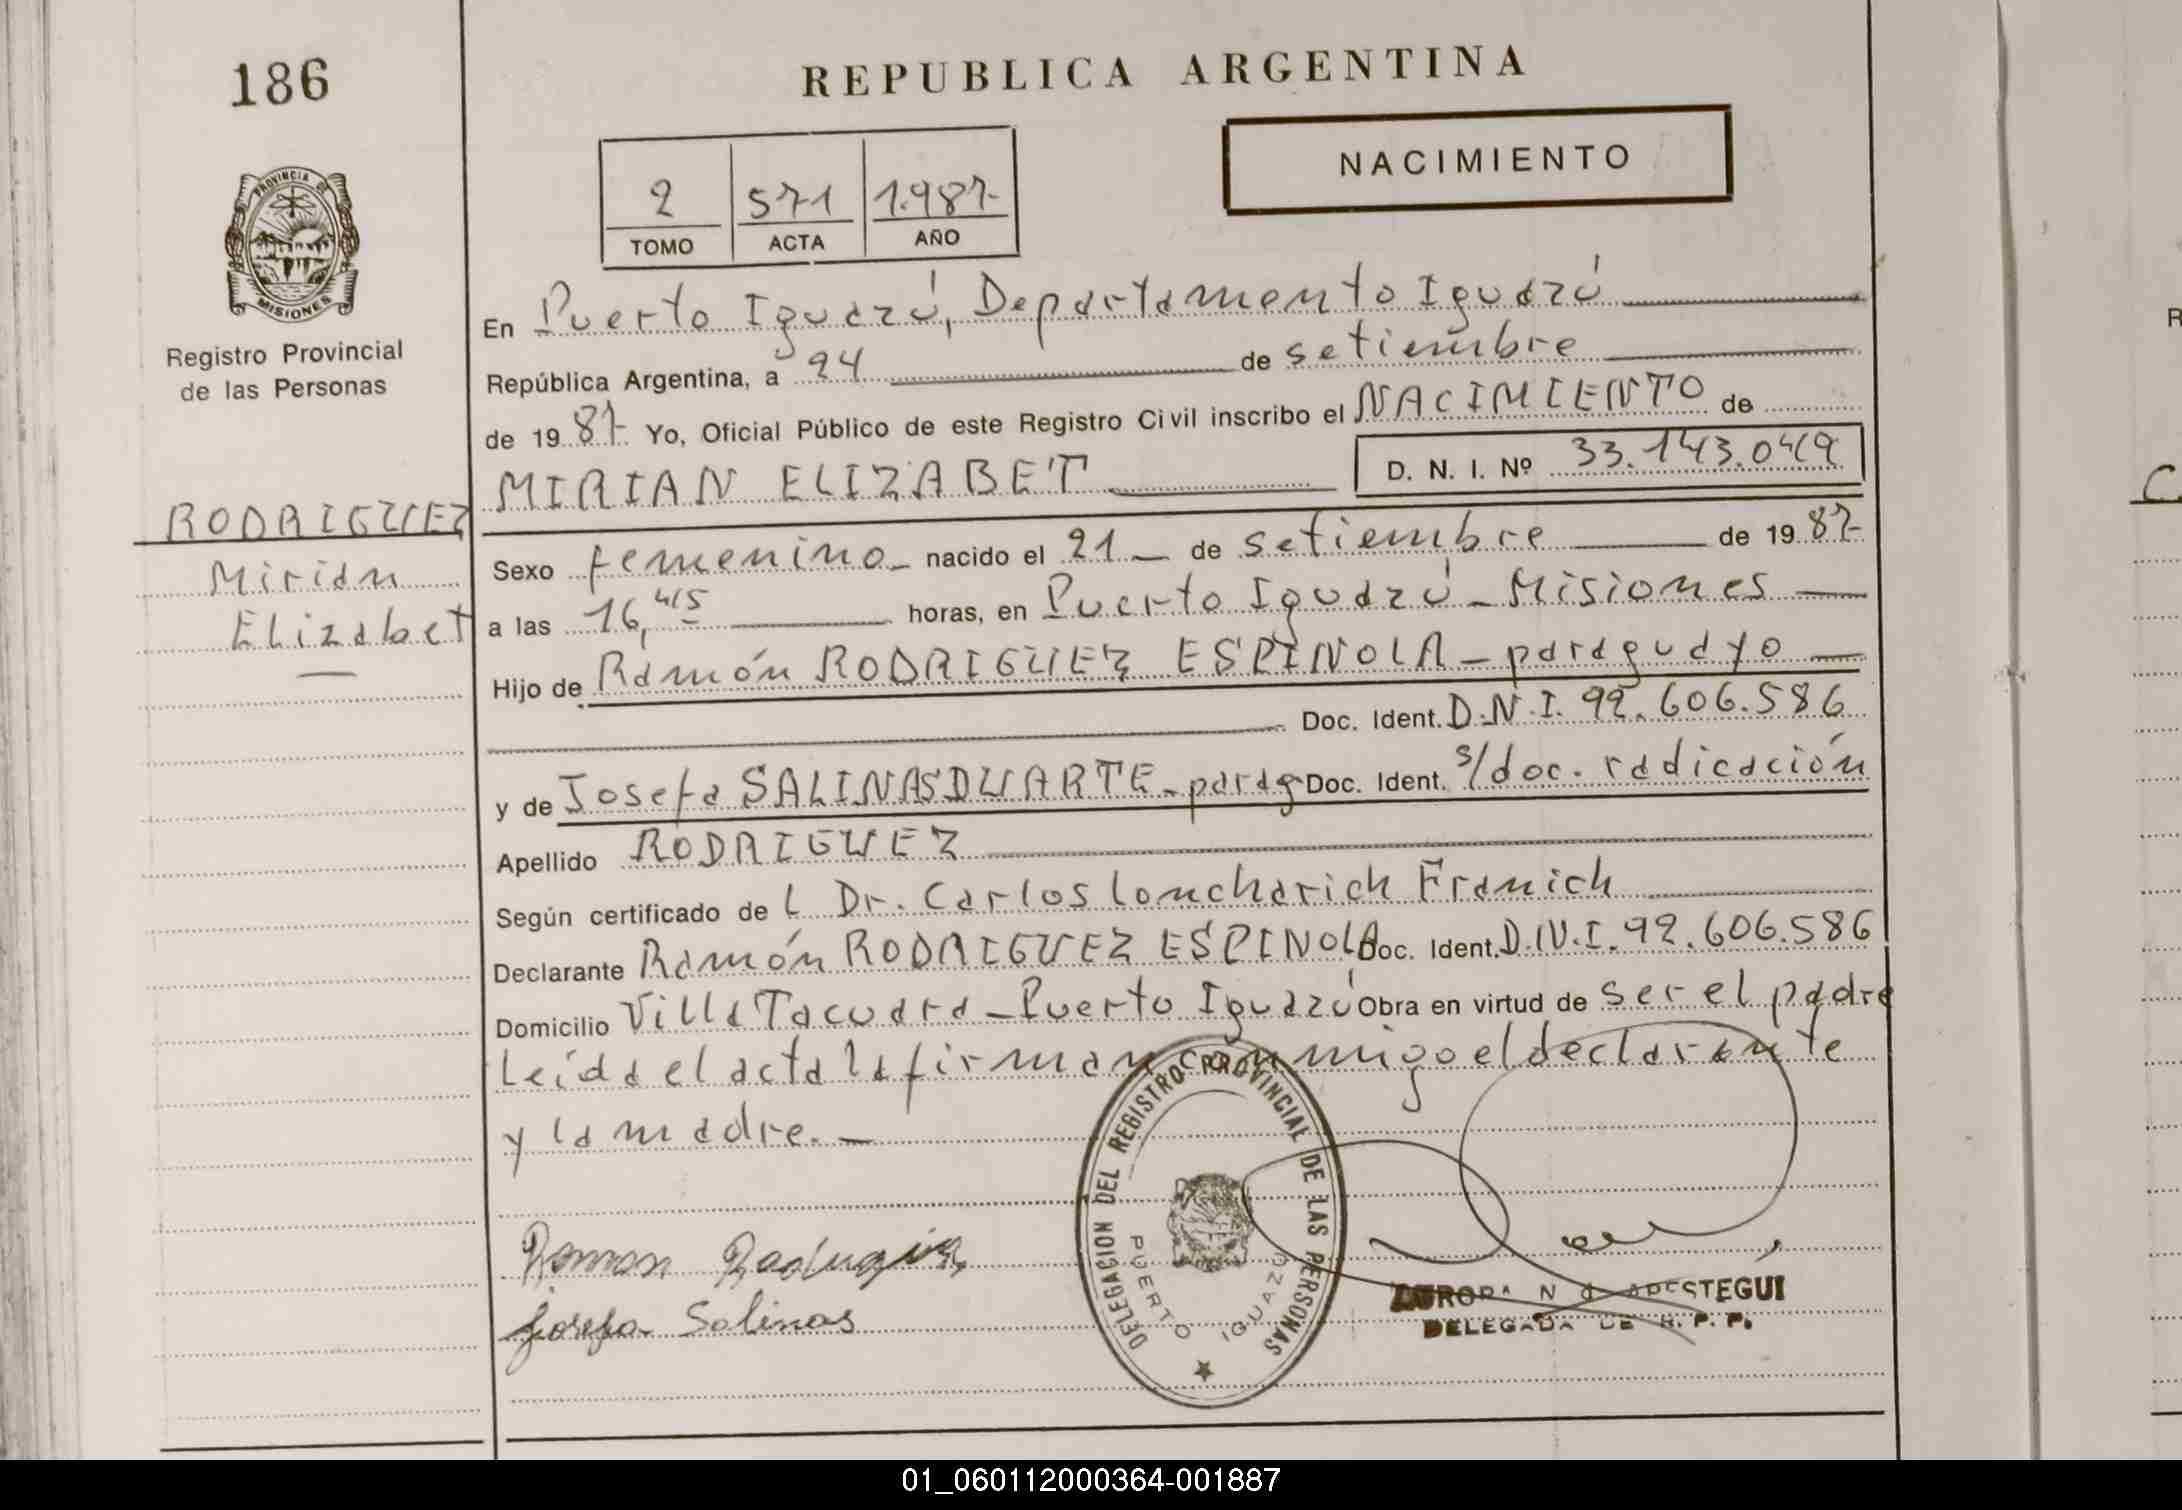 186
REPUBLICA ARGENTINA
NACIMIENTO
2 571 1.987-
TOMO ACTA AÑO
PROVINCIA DE
MISIONES
Registro Provincial
de las Personas
RODRIGUEZ
Mirian
Elizabet
En Puerto Iguazú, Departamento Iguazú
República Argentina, a 24 de setiembre
de 1987- Yo, Oficial Público de este Registro Civil inscribo el NACIMIENTO de
MIRIAN ELIZABET D. N. I. Nº 33.143.049
Sexo femenino_ nacido el 21_ de setiembre de 1987-
a las 16,45 horas, en Puerto Iguazú_Misiones
Hijo de Ramón RODRIGUEZ ESPINOLA_paraguayo
Doc. Ident. D.N.I. 92.606.586
y de Josefa SALINAS DUARTE_parag Doc. Ident. s/doc. radicación
Apellido RODRIGUEZ
Según certificado de l Dr. Carlos Loncharich Franich
Declarante Ramón RODRIGUEZ ESPINOLA Doc. Ident. D.N.I. 92.606.586
Domicilio Villa Tacuara_Puerto Iguazú Obra en virtud de ser el padre
Leída el acta la firman conmigo el declarante
y la madre._
DELEGACION DEL REGISTRO PROVINCIAL DE LAS PERSONAS
PUERTO IGUAZU
Ramon
Josefa Salinas
DELEGADA DE R. P. P.
01_060112000364-001887